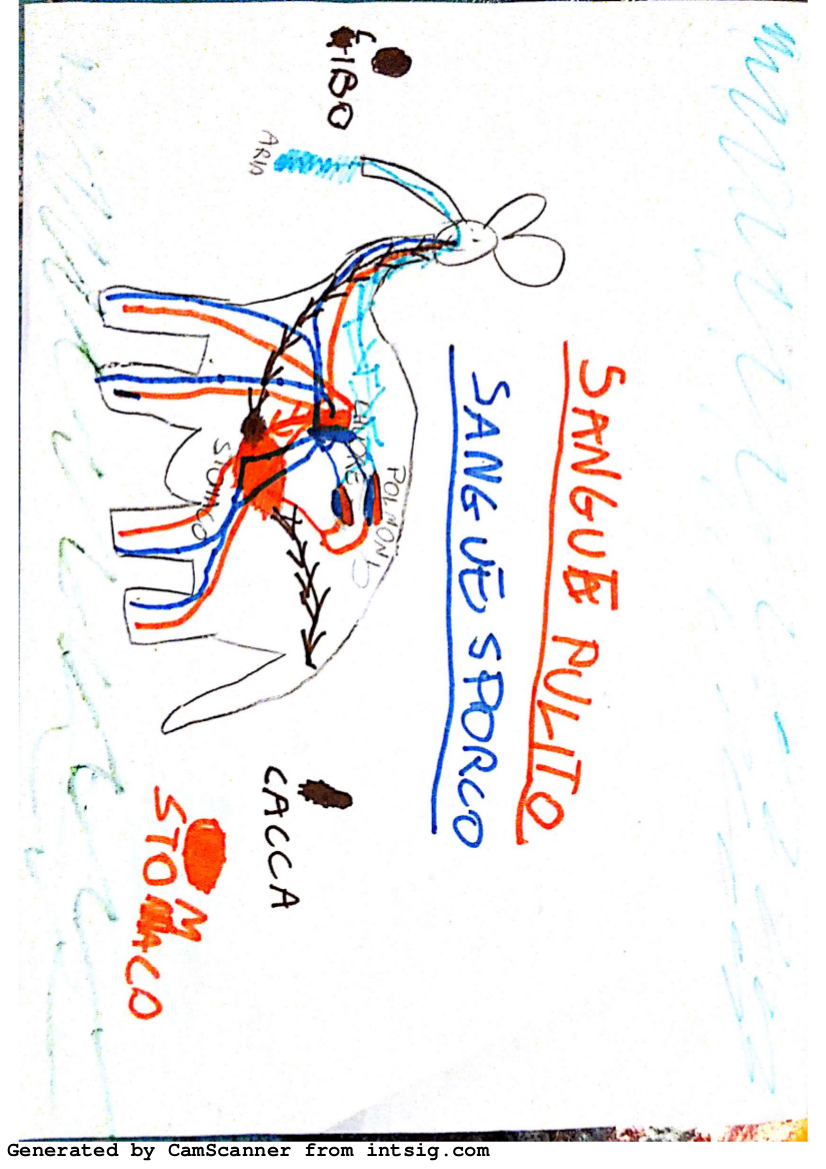 SANGUE PULITO
SANGUE SPORCO
CIBO
ARIA
CUORE
POLMONI
STOMACO
CACCA
STOMACO
Generated by CamScanner from intsig.com